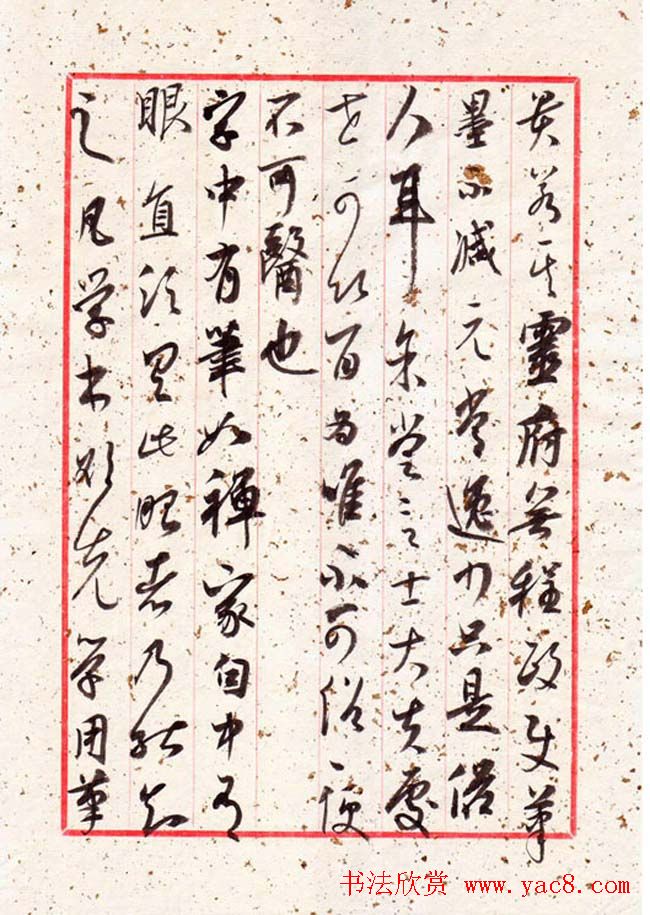 貴若其靈府無程政使筆
墨不減元常逸少只是俗
人耳余嘗言士大夫處
世可以百为唯不可俗俗便
不可醫也
字中有筆如禪家句中有
眼直須具此眼者乃能知
之凡学書欲先学用筆
书法欣赏 www.yac8.com